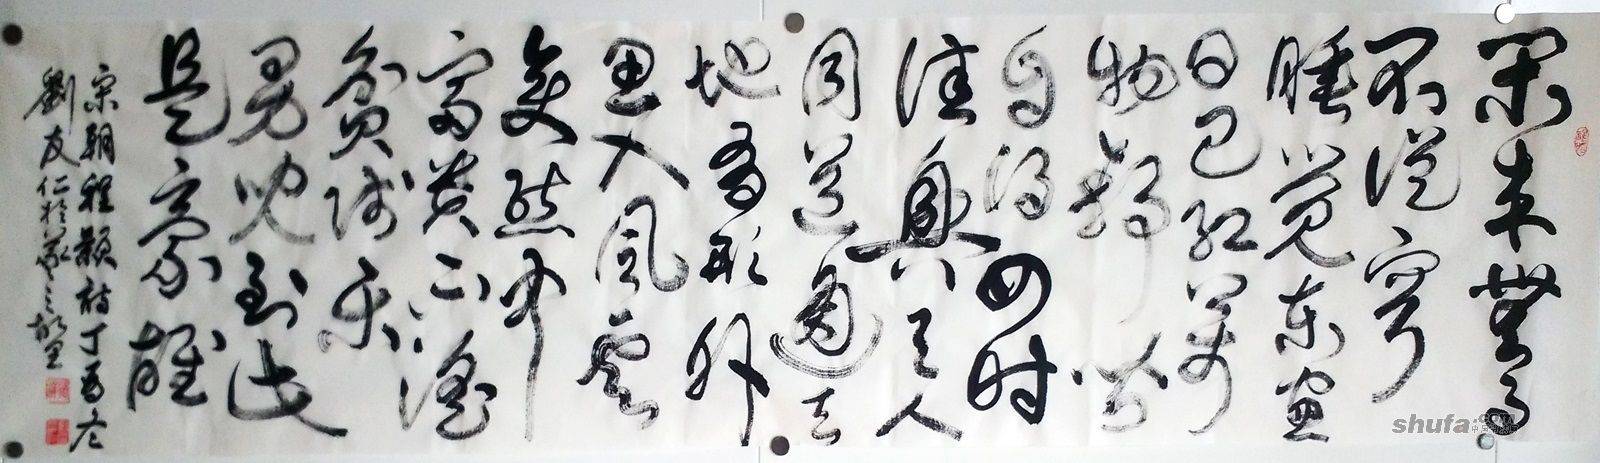 閑来無事
不從容
睡觉东窗
日已红萬
物静觀皆
自得四时
佳興與人
同道通天
地有形外
思入風雲
變態中
富貴不淫
貧賤樂
男兒到此
是豪雄
宋朝程顥詩丁酉
劉友仁於
shufa